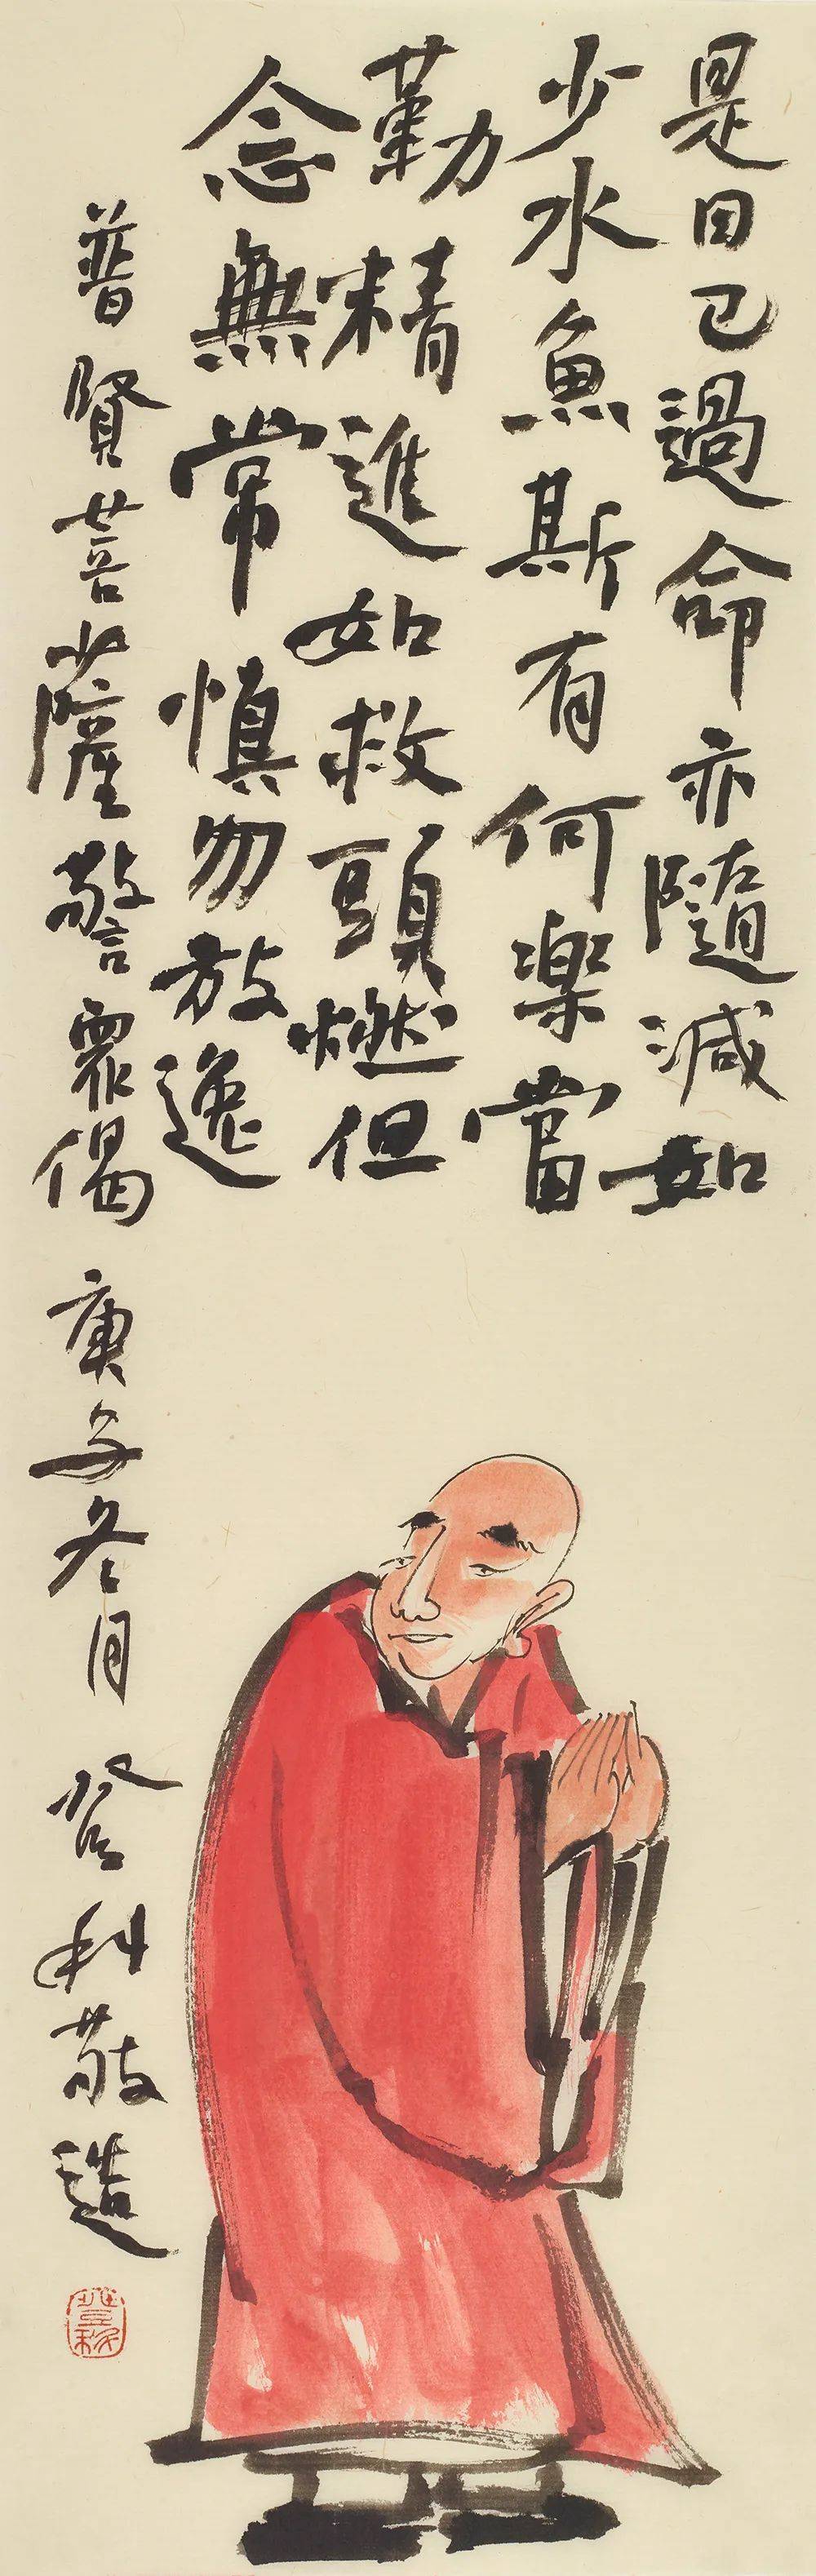 是日已過命亦隨減如
少水魚斯有何樂當
勤精進如救頭燃但
念無常慎勿放逸
普賢菩薩警眾偈 庚子冬月 登科敬造
登科